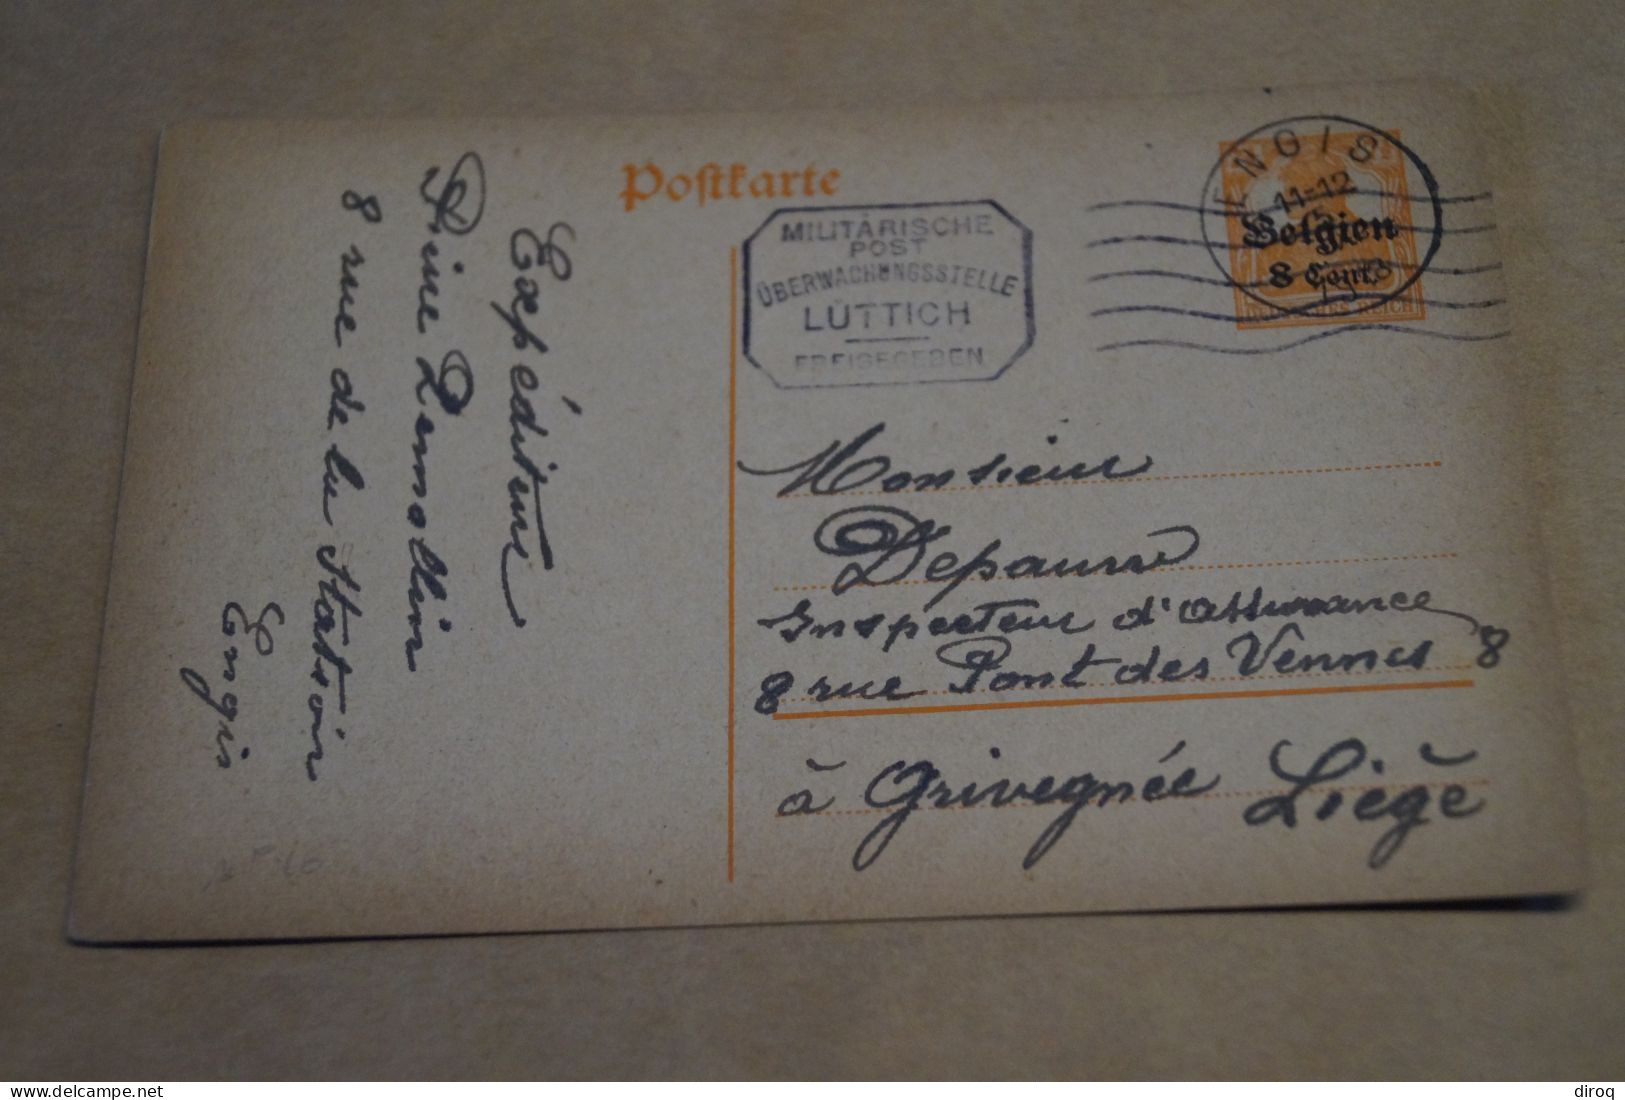 Postkarte
MILITÄRISCHE
POST
ÜBERWACHUNGSSTELLE
LÜTTICH
FREIGEGEBEN
ENGIS
11-12
Belgien
8 Cent.
DEUTSCHES REICH
Expéditeur
8 rue de la Station
Engis
Monsieur
Depauw
Inspecteur d'assurance
8 rue Pont des Vennes 8
à Grivegnée Liège
www.delcampe.net
diroq